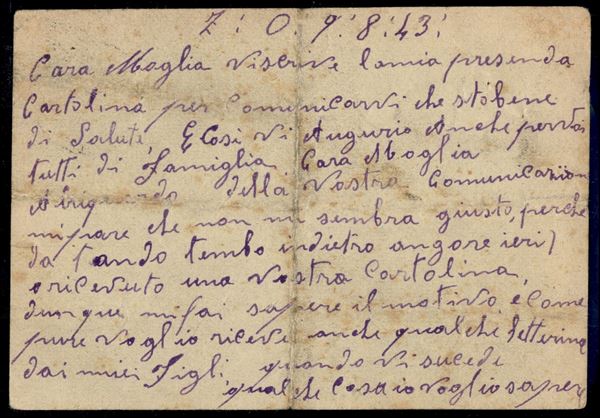 Z: O. 9: 8: 43:
Cara Moglia Viscrive lamia presenda
Cartolina per Comunicarvi che stòbene
di Salute, E Cosi vi Augurio Anche per voi
tutti di Famiglia Cara Moglia
Ariguardo della Vostra Comunicaziion
mipare che non mi sembra giusto, perche
da tando tembo indietro angore ieri
oricevuto una Vostra Cartolina,
dunque mifai sapere il motivo, e come
pure voglio riceve anche qualche letterina
dai miei Figli, quando vi sucede
qualche Cosa io voglio sapere